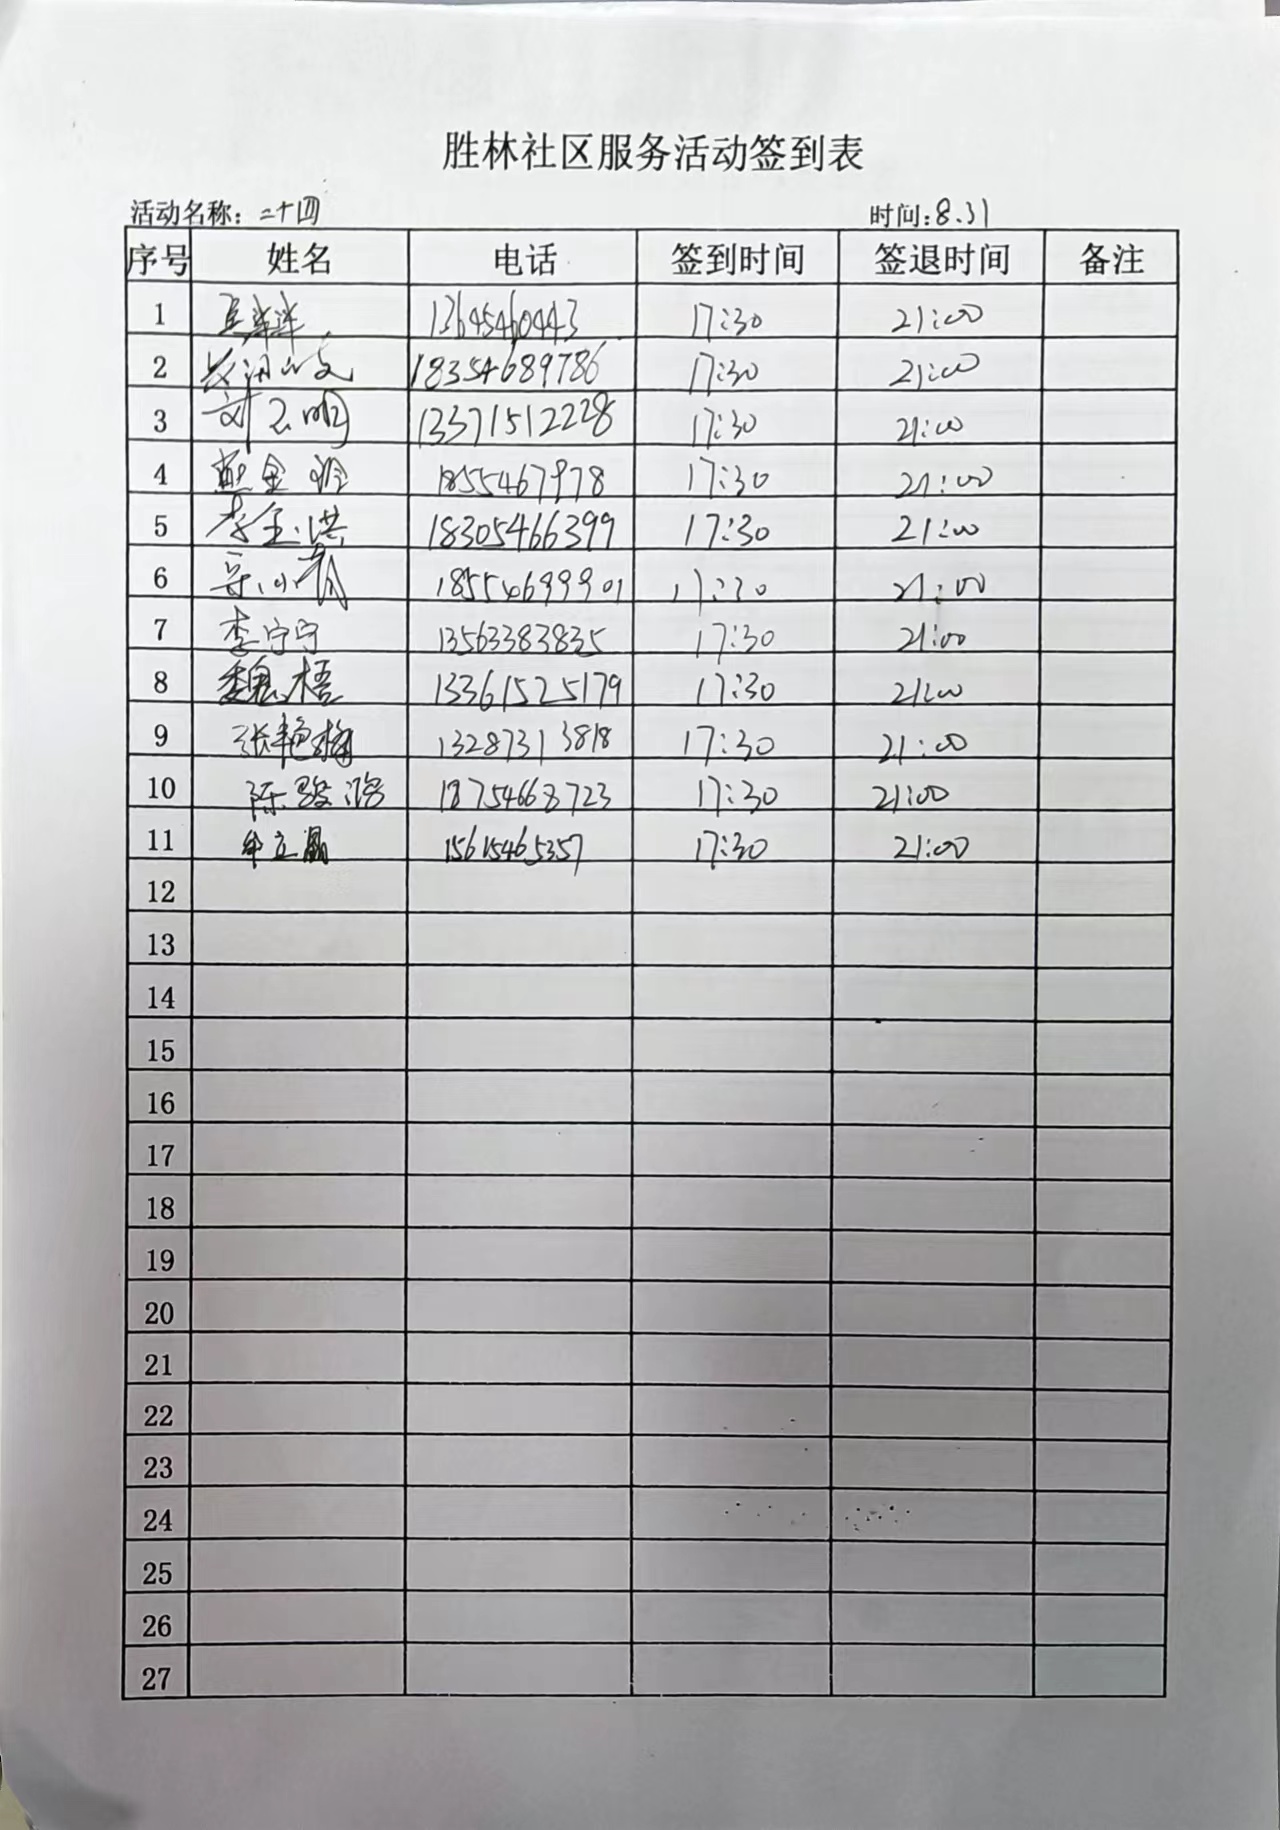 胜林社区服务活动签到表
活动名称：二十四 时间：8.31
序号 姓名 电话 签到时间 签退时间 备注
1 13645460443 17:30 21:00
2 18354689786 17:30 21:00
3 13371512228 17:30 21:00
4 1855467978 17:30 21:00
5 李玉洪 18305466399 17:30 21:00
6 18554699901 17:30 21:00
7 李宁宁 13563383835 17:30 21:00
8 魏梧 13361525179 17:30 21:00
9 张艳梅 13287313818 17:30 21:00
10 陈骏 18754668723 17:30 21:00
11 15615465357 17:30 21:00
12
13
14
15
16
17
18
19
20
21
22
23
24
25
26
27